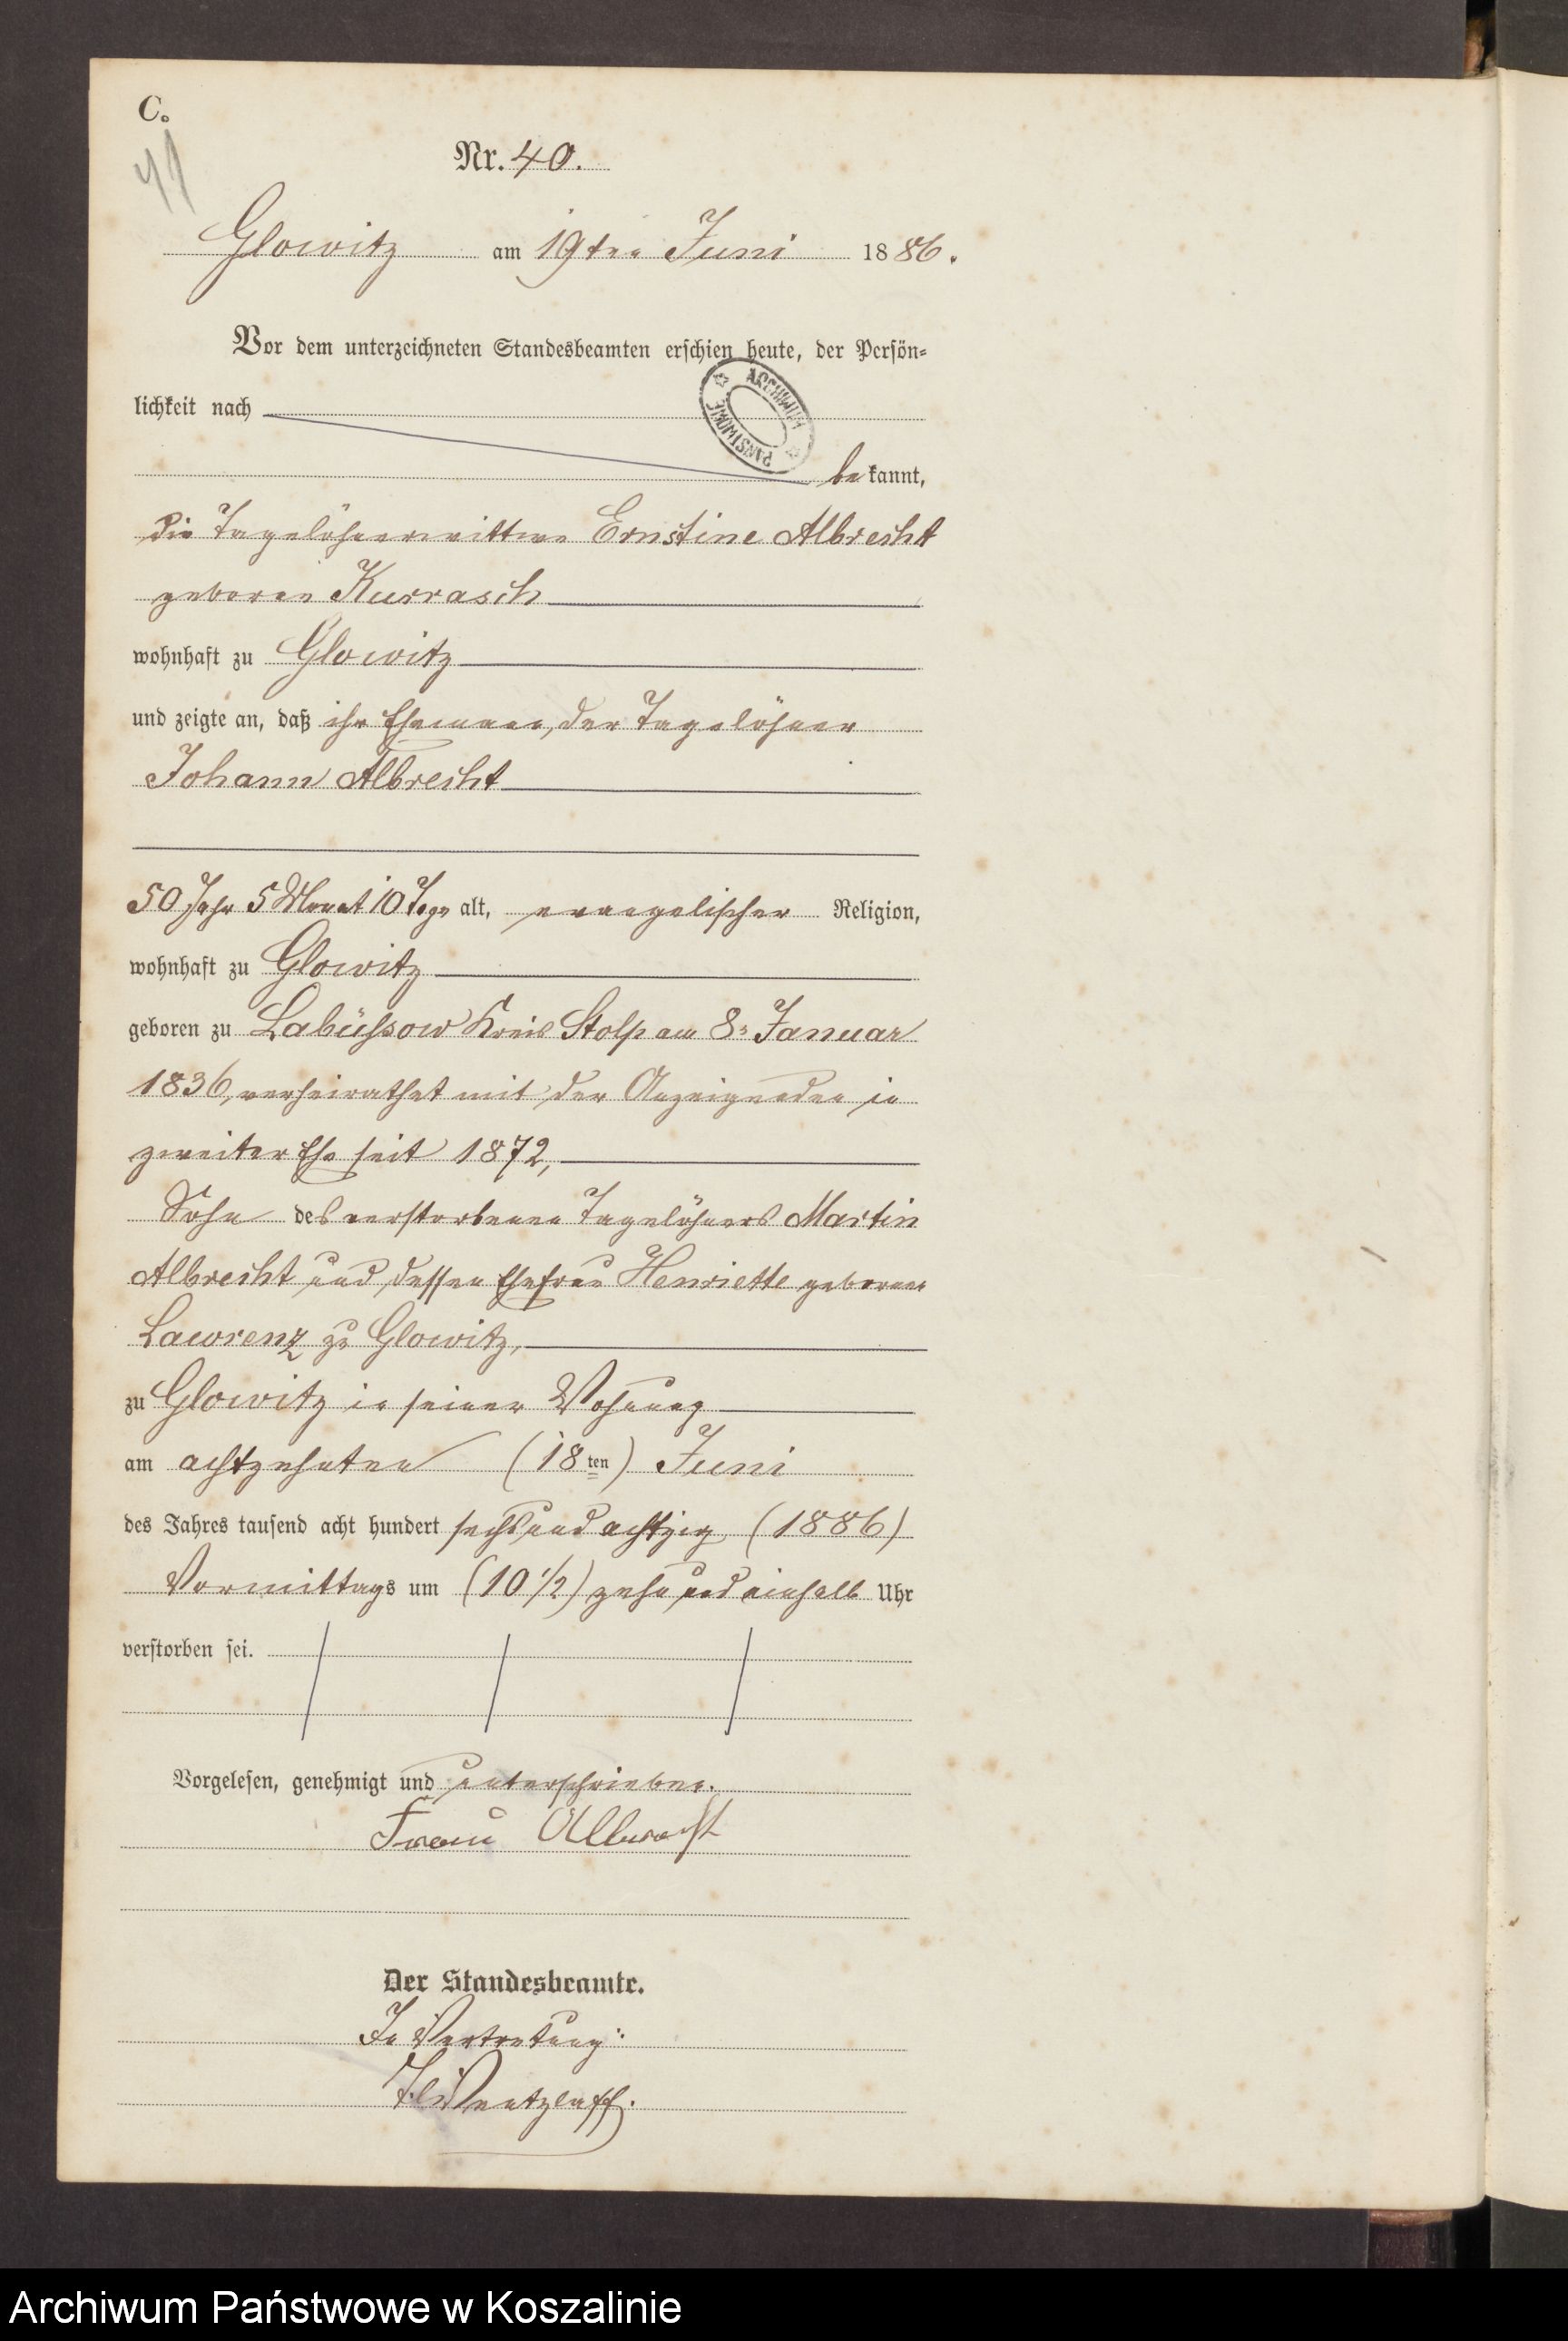 C.
41
Nr. 40.
Glowitz am 19ten Juni 1886.
Vor dem unterzeichneten Standesbeamten erschien heute, der Persön-
lichkeit nach
ARCHIWUM PAŃSTWOWE
bekannt,
die Tagelöhnerwittwe Ernstine Albrecht
geborene Kurrasch
wohnhaft zu Glowitz
und zeigte an, daß ihr Ehemann, der Tagelöhner
Johann Albrecht
50 Jahr 5 Monat 10 Tage alt, evangelischer Religion,
wohnhaft zu Glowitz
geboren zu Labüssow Kreis Stolp am 8. Januar
1836, verheirathet mit der Anzeigenden in
zweiter Ehe seit 1872,
Sohn des verstorbenen Tagelöhners Martin
Albrecht und dessen Ehefrau Henriette geborene
Lawrenz zu Glowitz,
zu Glowitz in seiner Wohnung
am achtzehnten (18ten) Juni
des Jahres tausend acht hundert sechs und achtzig (1886)
Vormittags um (10 1/2) zehn und einhalb Uhr
verstorben sei.
Vorgelesen, genehmigt und unterschrieben.
Frau Albrecht
Der Standesbeamte.
In Vertretung:
Wentzlaff.
Archiwum Państwowe w Koszalinie